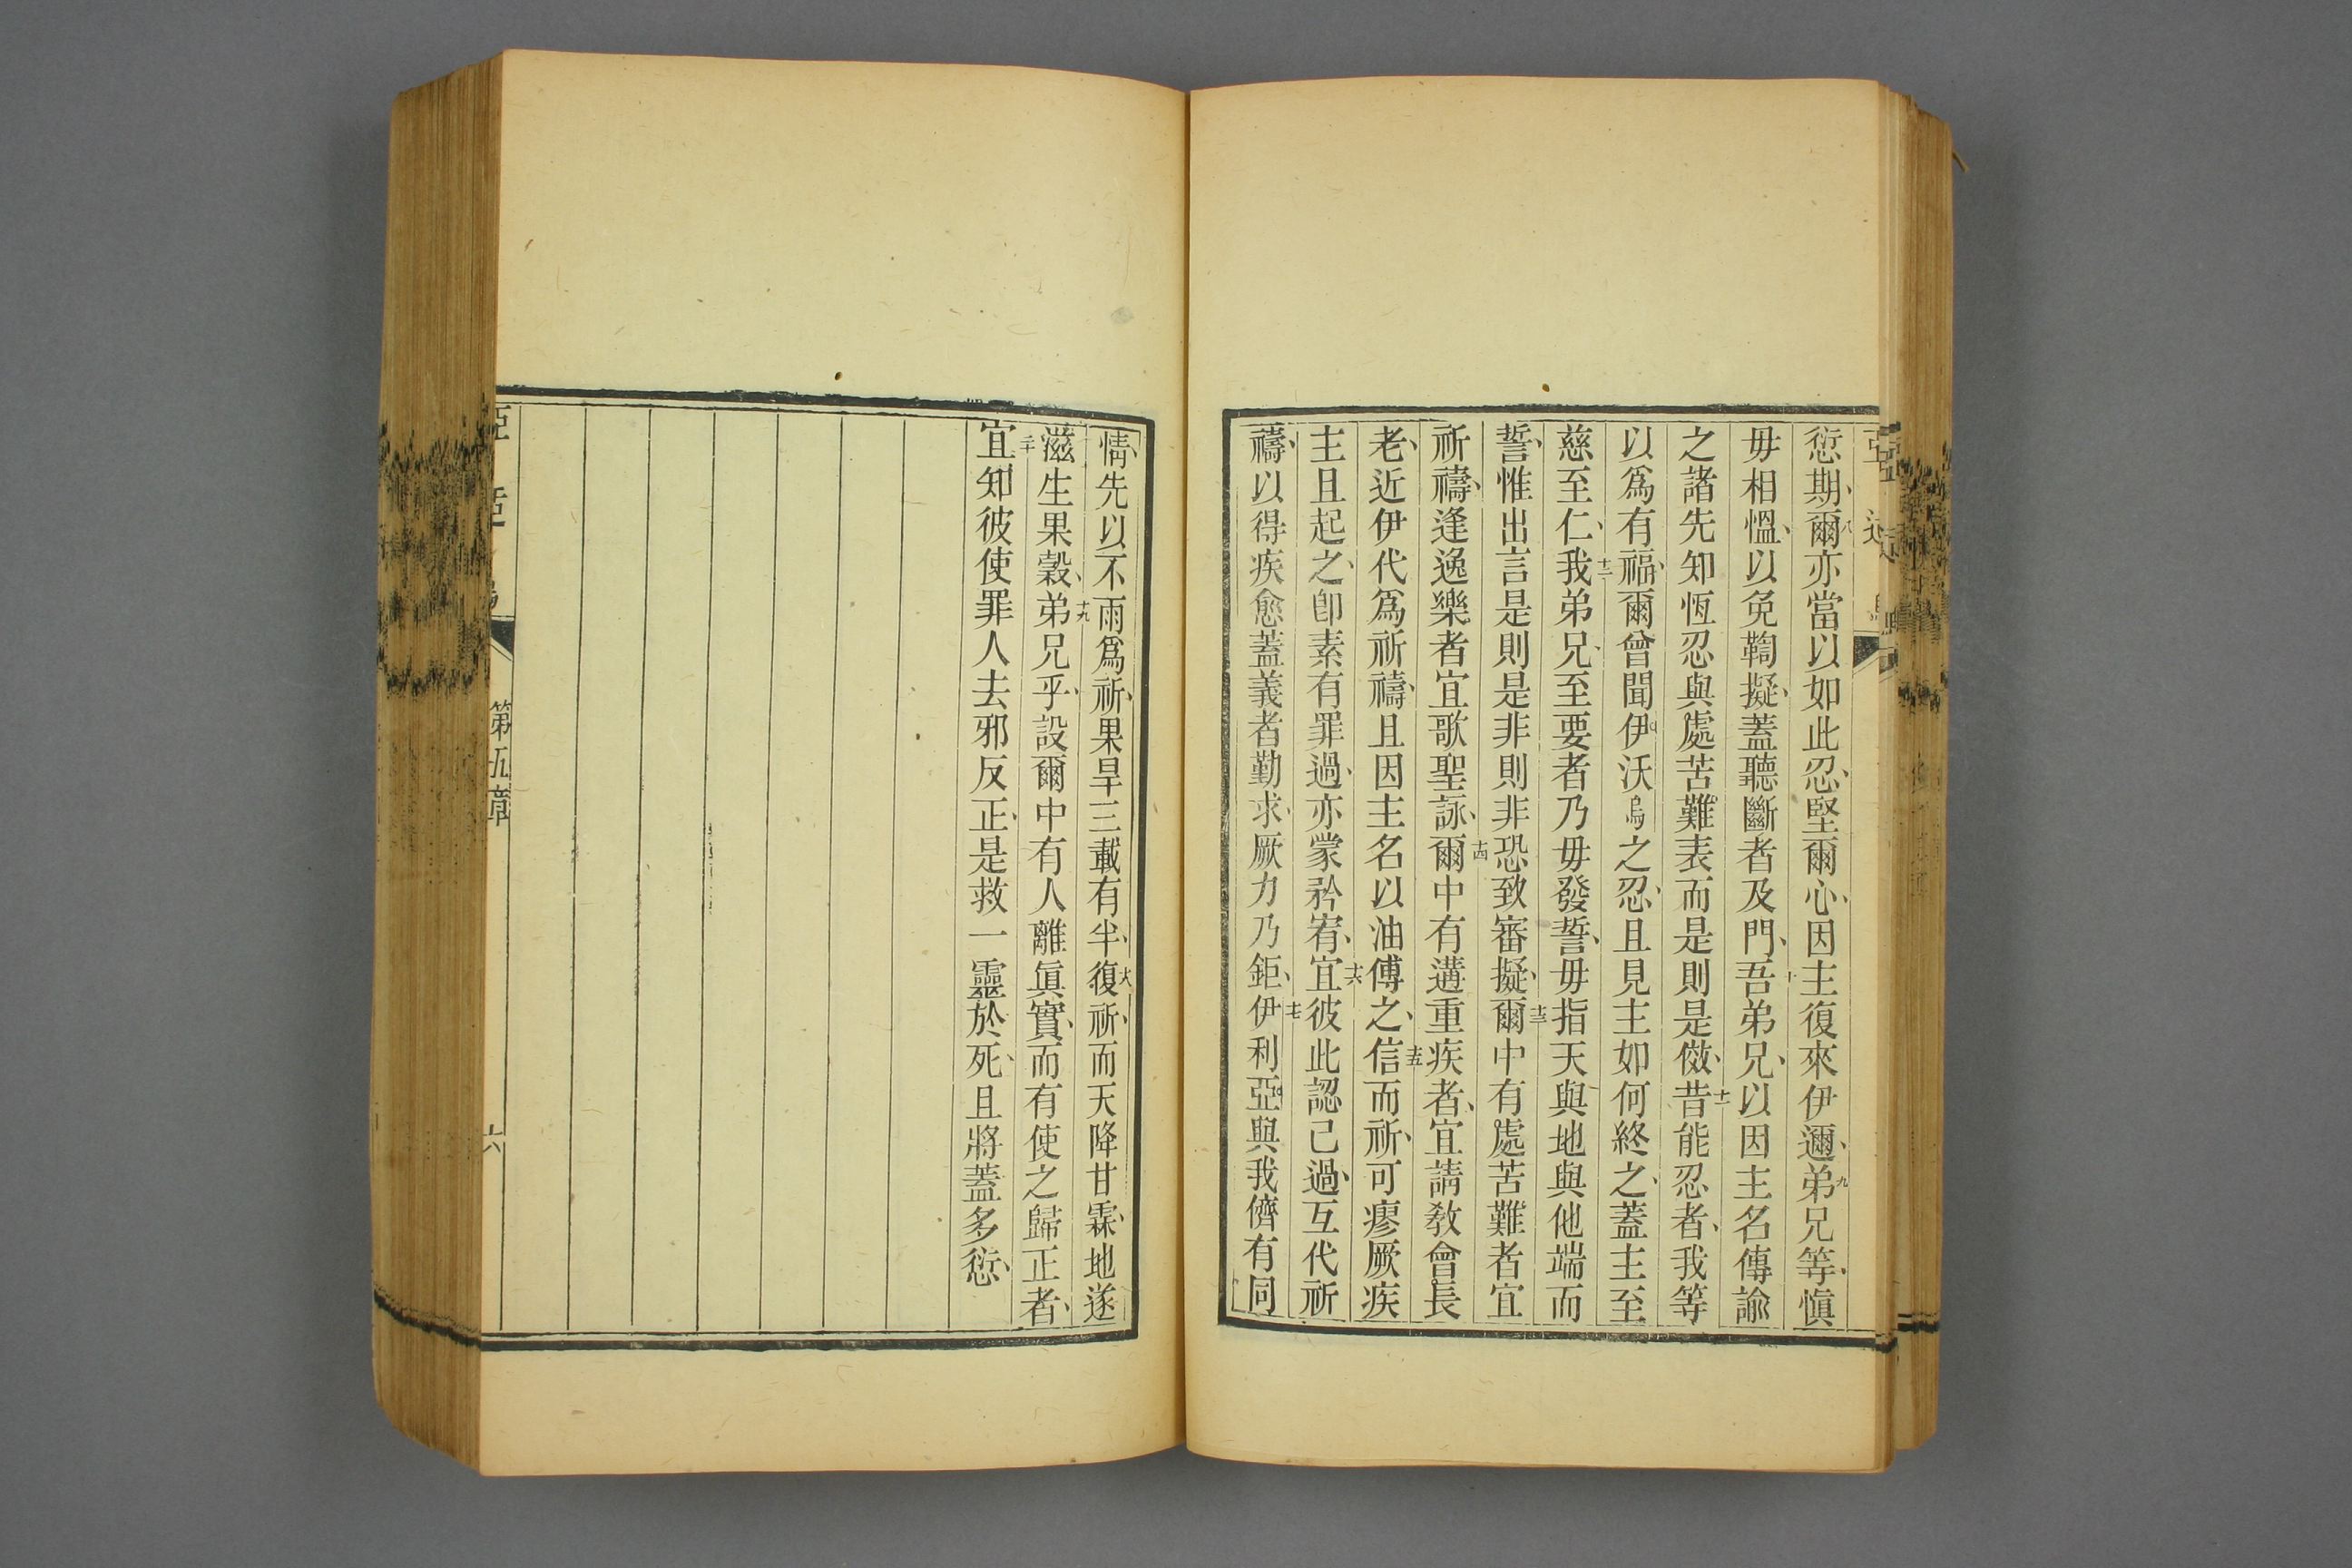 愆期、爾八亦當以如此忍、堅爾心、因主復來伊邇、弟九兄等、愼
毋相慍、以免鞫擬、蓋聽斷者及門、吾十弟兄、以因主名傳諭
之諸先知恆忍與處苦難、表而是則是傚、昔十一能忍者、我等
以爲有福、爾曾聞伊沃烏之忍、且見主如何終之、蓋主至
慈至仁、我十二弟兄、至要者乃毋發誓、毋指天與地與他端而
誓、惟出言是則是非則非、恐致審擬、爾十三中有處苦難者宜
祈禱、逢逸樂者宜歌聖詠、爾十四中有遘重疾者、宜請教會長
老、近伊代爲祈禱、且因主名以油傅之、信十五而祈、可瘳厥疾
主且起之、卽素有罪過、亦蒙矜宥、宜十六彼此認己過、互代祈
禱、以得疾愈蓋義者勤求、厥力乃鉅、伊十七利亞與我儕有同
情、先以不雨爲祈、果旱三載有半、復十八祈、而天降甘霖、地遂
滋生果穀、弟十九兄乎、設爾中有人離眞實、而有使之歸正者、
宜二十知彼使罪人去邪反正、是救一靈於死、且將蓋多愆、
第五章
六